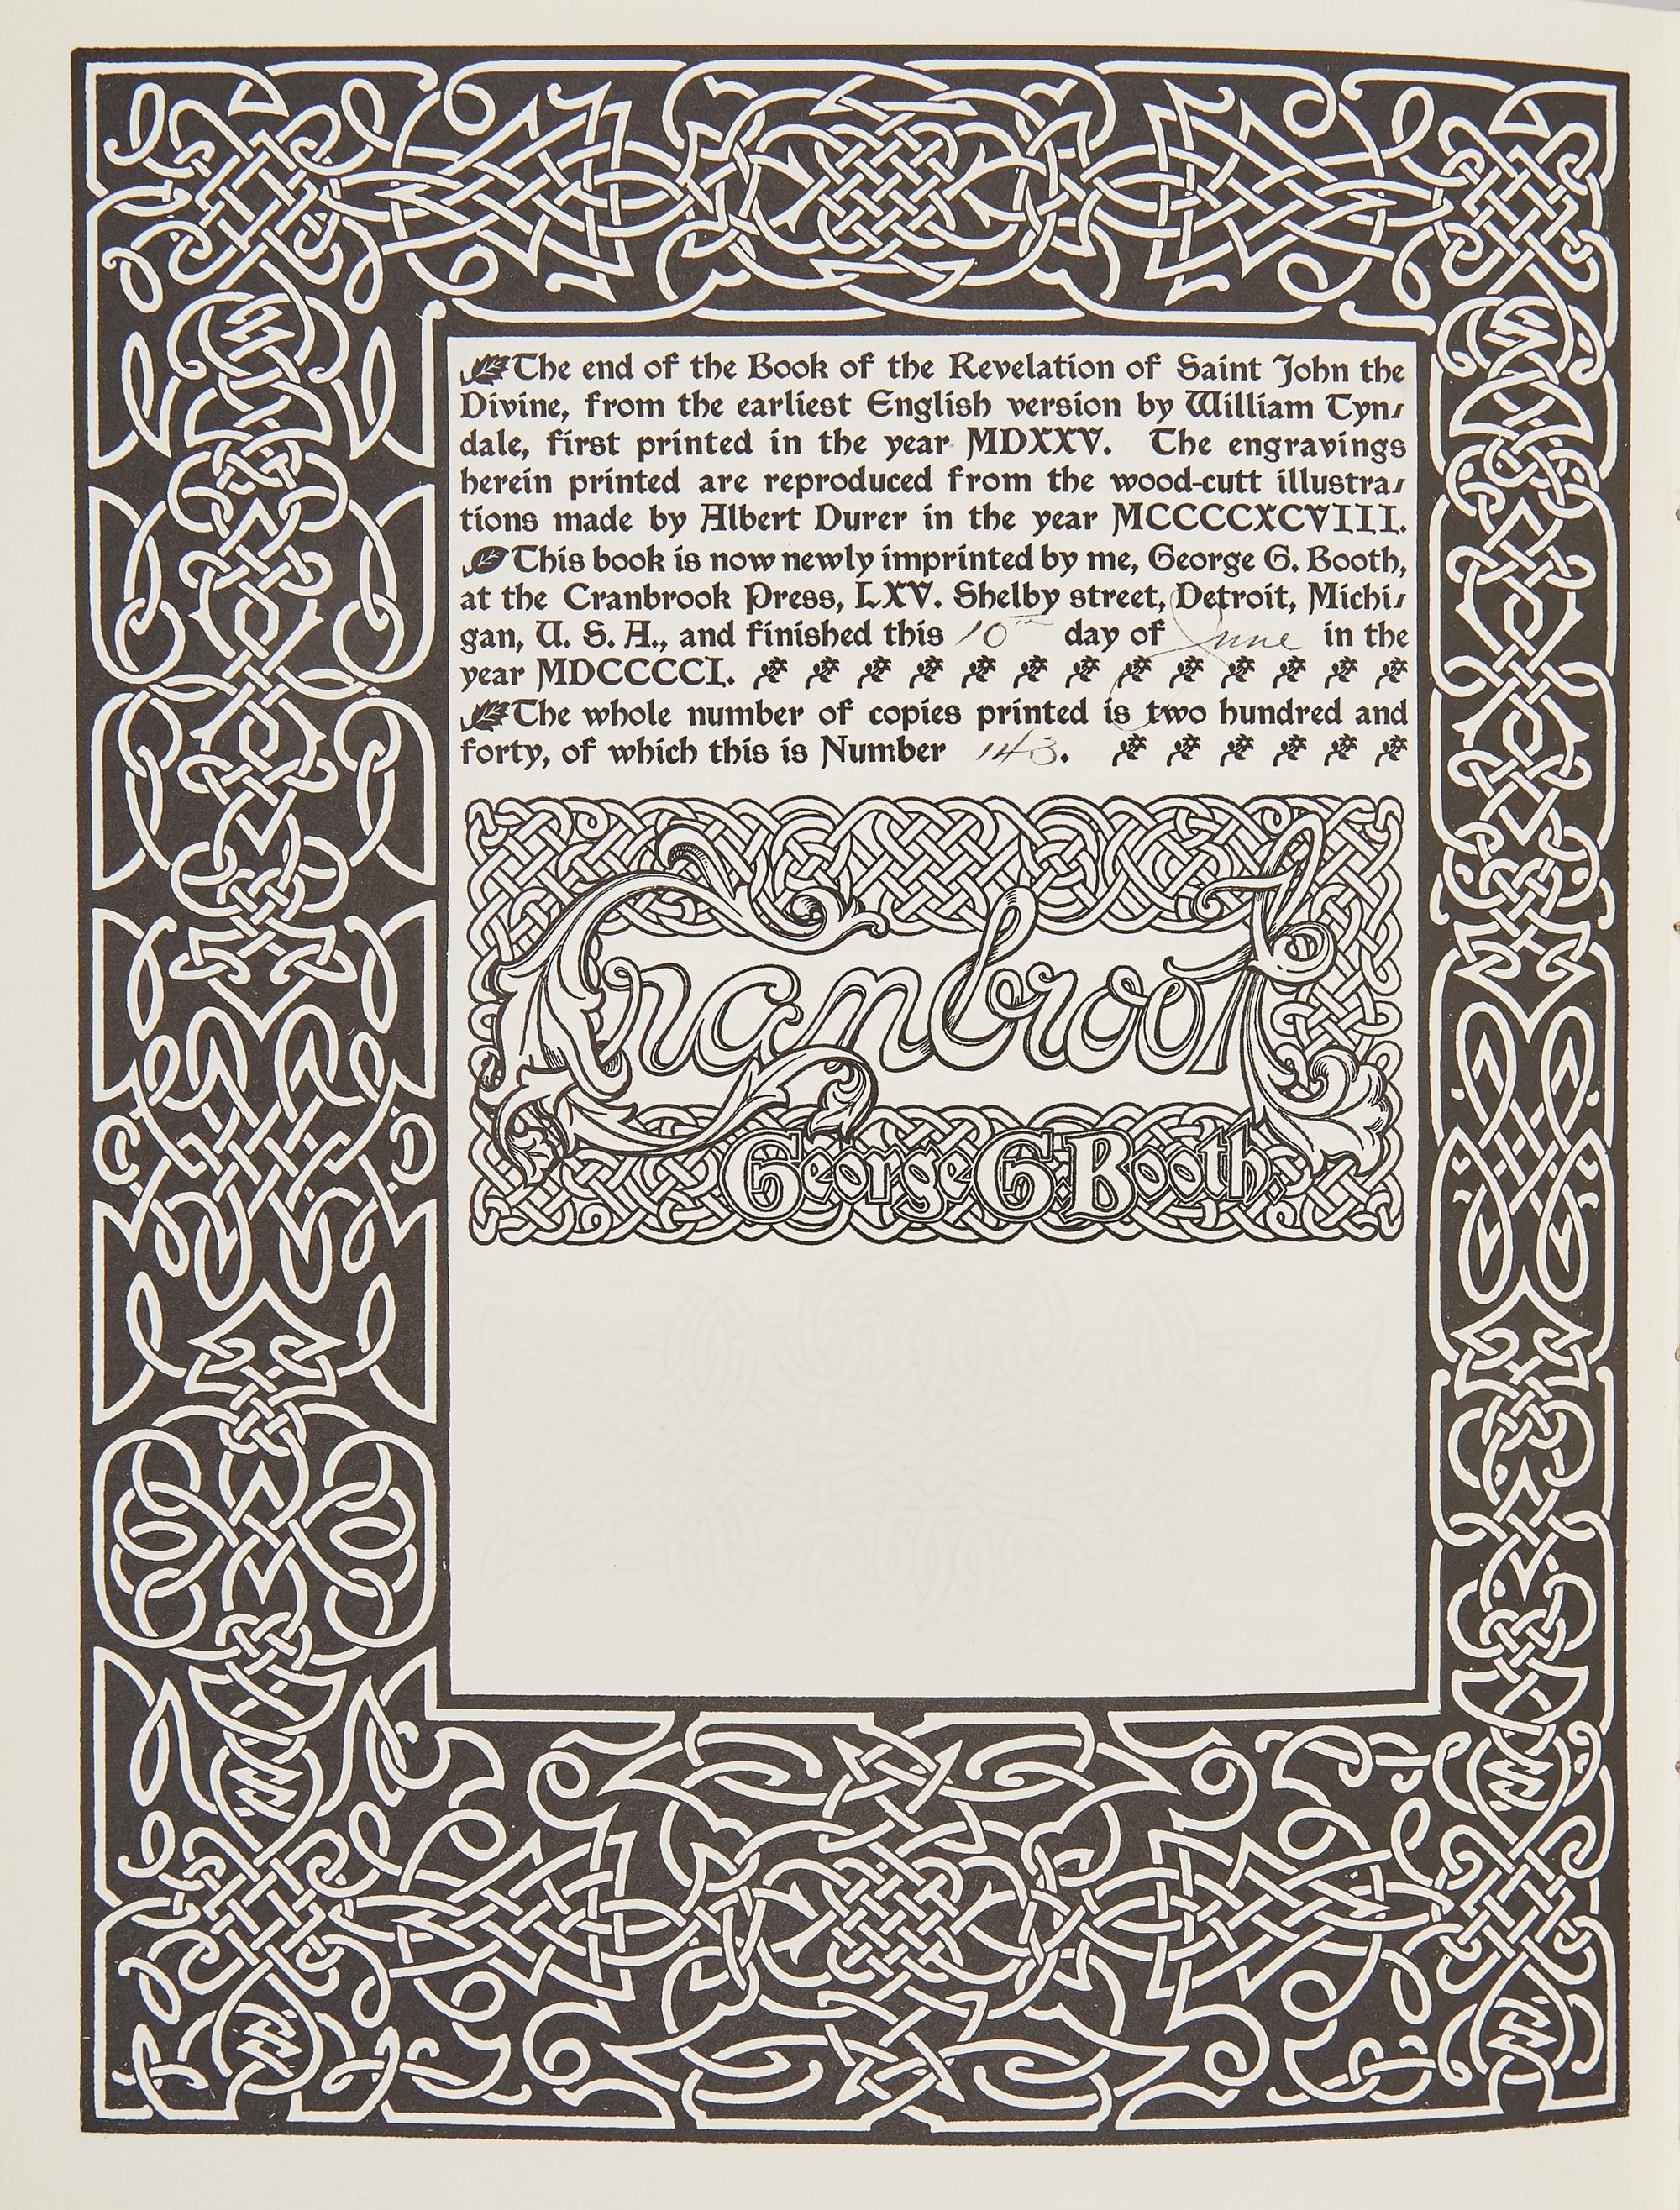 The end of the Book of the Revelation of Saint John the
Divine, from the earliest English version by William Tyn-
dale, first printed in the year MDXXV. The engravings
herein printed are reproduced from the wood-cutt illustra-
tions made by Albert Durer in the year MCCCCXCVIII.
This book is now newly imprinted by me, George G. Booth,
at the Cranbrook Press, LXV. Shelby street, Detroit, Michi-
gan, U. S. A., and finished this 10th day of June in the
year MDCCCCI.
The whole number of copies printed is two hundred and
forty, of which this is Number 143.
Cranbrook
George G. Booth.